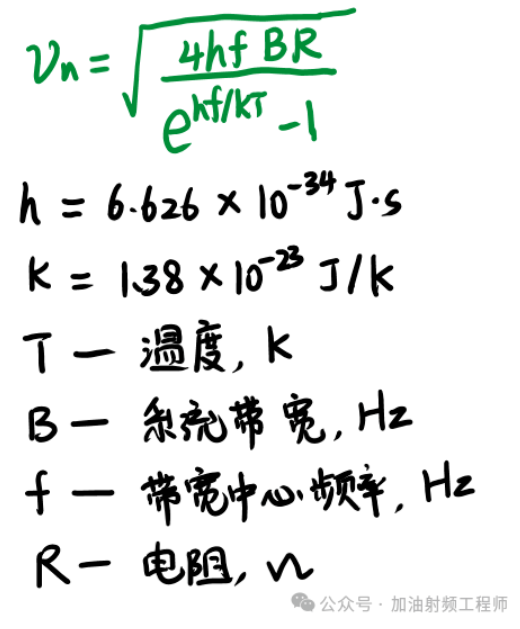 Vn = √(4hf BR / (e^(hf/kT) - 1))
h = 6.626 × 10^-34 J·s
K = 1.38 × 10^-23 J/k
T — 温度, K
B — 系统带宽, Hz
f — 带宽中心频率, Hz
R — 电阻, Ω
公众号 · 加油射频工程师